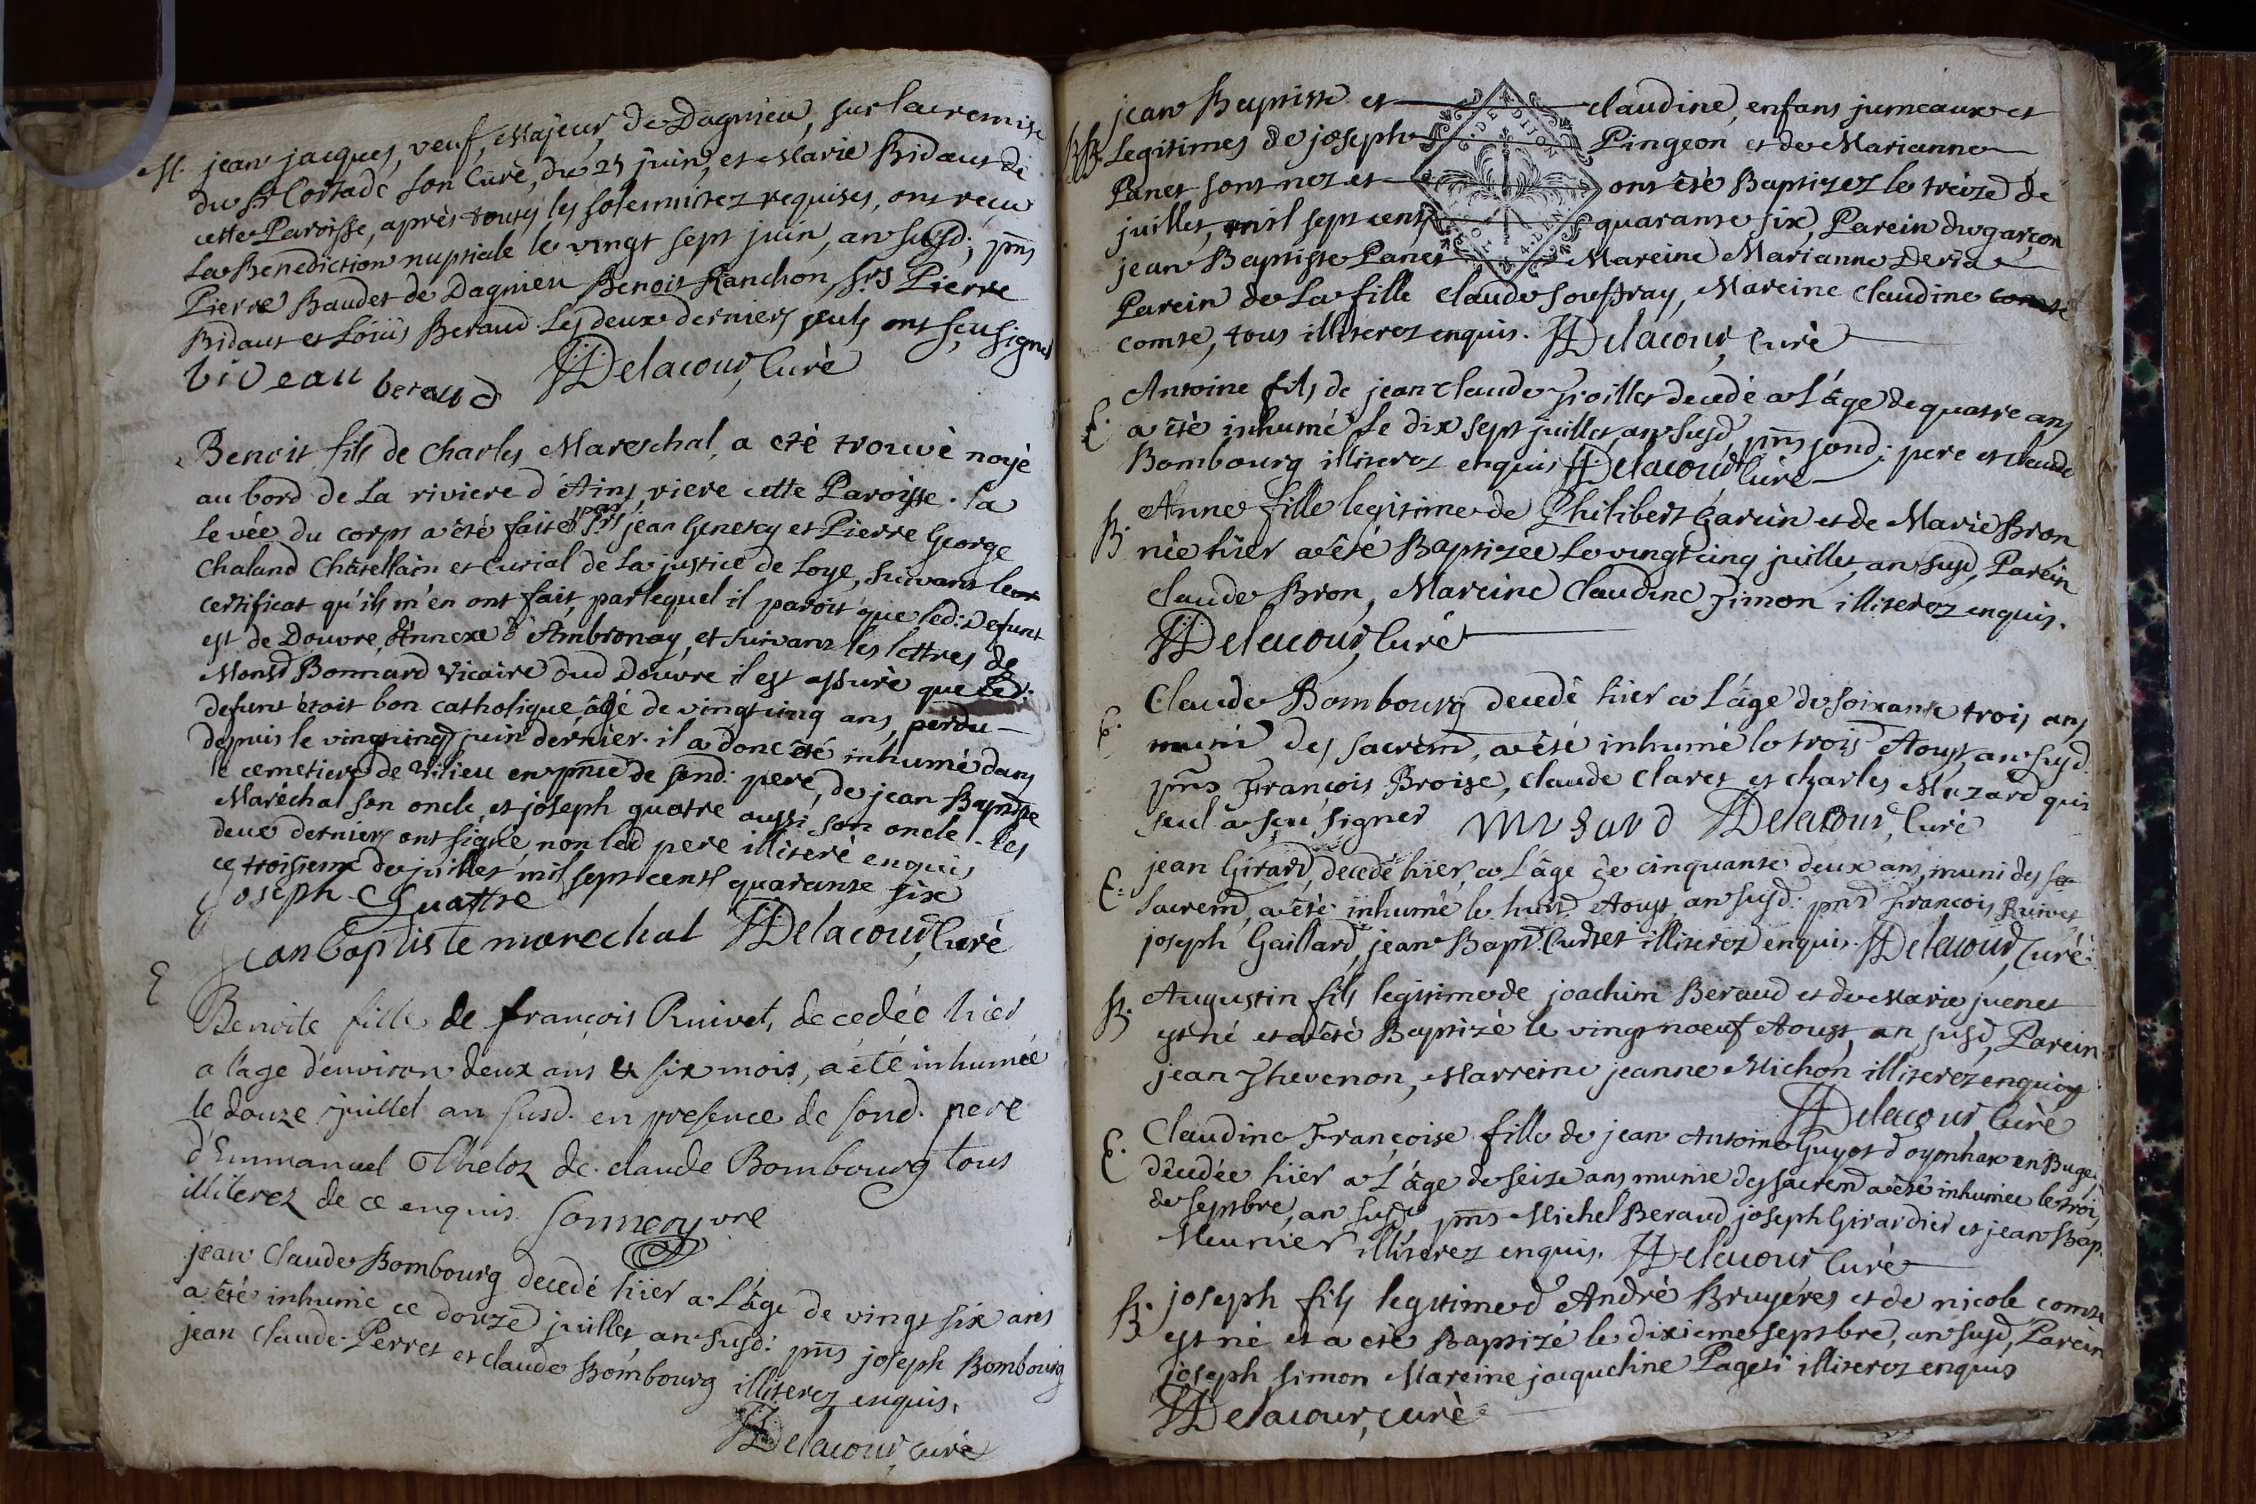 M. jean jacques, veuf, Majeur, de Dagnieu, sur la remise
du Sr Cortade son Curé, du 25 juin, et Marie Bidaut de
cette Paroisse, après toutes les solemnitez requises, ont reçu
La Benediction nuptiale le vingt sept juin, an susd; pnts
Pierre Baudet de Dagnieu Benoit Ranchon, Srs Pierre
Bidaut et Loüis Beraud Les deux derniers seuls ont sçu signer
bideau beraud HDelacour, Curé
Benoit fils de Charles Mareschal, a eté trouvé noyé
au bord de La riviere d'Ains, riere cette Paroisse. la
levée du corps a été faite par Srs jean Genevay et Pierre George
Chaland Châtellain et Curial de La justice de Loye, suivant leur
certificat qu'ils m'en ont fait, par lequel il paroit que led: Defunt
est de Douvre, Annexe d'Ambronay, et suivant les lettres de
Monsr Bonnard Vicaire dud Douvre il est assuré que led:
defunt étoit bon catholique, âgé de vingt cinq ans, perdu
depuis le vingt cinq juin dernier. il a donc été inhumé dans
le cemetiere de Vilieu en pnce de sond: pere, de jean Baptiste
Maréchal son oncle, et joseph quatre aussi son oncle. les
deux derniers ont signé, non led pere illiteré enquis
ce troisieme de juillet mil sept cents quarante six
joseph Quattre
jean baptiste marechal HDelacour, Curé
E Benoite fille de françois Ruivet, decedée hier
a l'age d'environ deux ans & six mois, a été inhumée
le douze juillet an susd. en presence de sond. pere
d'Emmanuel Theloz de claude Bombourg tous
illiterez de ce enquis. Sonnery vre
jean Claude Bombourg decedé hier a L'âge de vingt six ans
a été inhumé ce douze juillet an susd: pnts joseph Bombourg
jean Claude Perret et claude Bombourg illiterez enquis.
HDelacour, Curé
jean Baptiste et claudine, enfans jumeaux et
BB. Legitimes de joseph Pingeon et de Marianne
Panet sont nez et ont été Baptizez le treize de
juillet, mil sept cents quarante six, Parein du garçon
jean Baptiste Panet Mareine Marianne Deria
Parein de La fille Claude Souffray, Mareine Claudine
comte, tous illiterez enquis. HDelacour, Curé
DE DIJON
E. Antoine fils de jean Claude Troillet decedé a L'âge de quatre ans
a été inhumé Le dix sept juillet, an susd, pnts sond: pere et claude
Bombourg illiterez enquis HDelacour Curé
B. Anne fille legitime de Philibert Garin et de Marie Bron
née hier a été Baptizée Le vingt cinq juillet, an susd, Parein
Claude Bron, Mareine Claudine Timon illiterez enquis.
HDelacour, Curé
E. Claude Bombourg decedé hier a L'âge de soixante trois ans
muni des sacrem, a été inhumé le trois Aoust, an susd.
pnts François Broise, Claude Claret et Charles Muzard qui
seul a sçu signer musard HDelacour, Curé
E. jean Girard, decedé hier, a L'âge de cinquante deux ans, muni des
sacrem, a été inhumé le huit Aoust, an susd. pnts François Ruivet
joseph Gaillard, jean Bapt. Curtet illiterez enquis. HDelacour, Curé
B. Augustin fils legitime de joachim Beraud et de Marie juenet
est né et a été Baptizé le vingt noeuf Aoust, an susd, Parein
jean Thevenon, Marreine jeanne Michon illiterez enquis
HDelacour, Curé
E. Claudine Françoise fille de jean Antoine Guyot d'oyonnax en Bugei,
decedée hier a L'âge de seize ans munie des sacrem a été inhumée le trois
de septbre, an susd, pnts Michel Beraud joseph Girardier et jean Bap.
Meunier illiterez enquis. HDelacour Curé
B. joseph fils legitime d'André Bruyeres et de nicole comte
est né et a été Baptizé le dixieme septbre, an susd, Parein
joseph simon Mareine jacqueline Paget illiterez enquis
HDelacour, curé